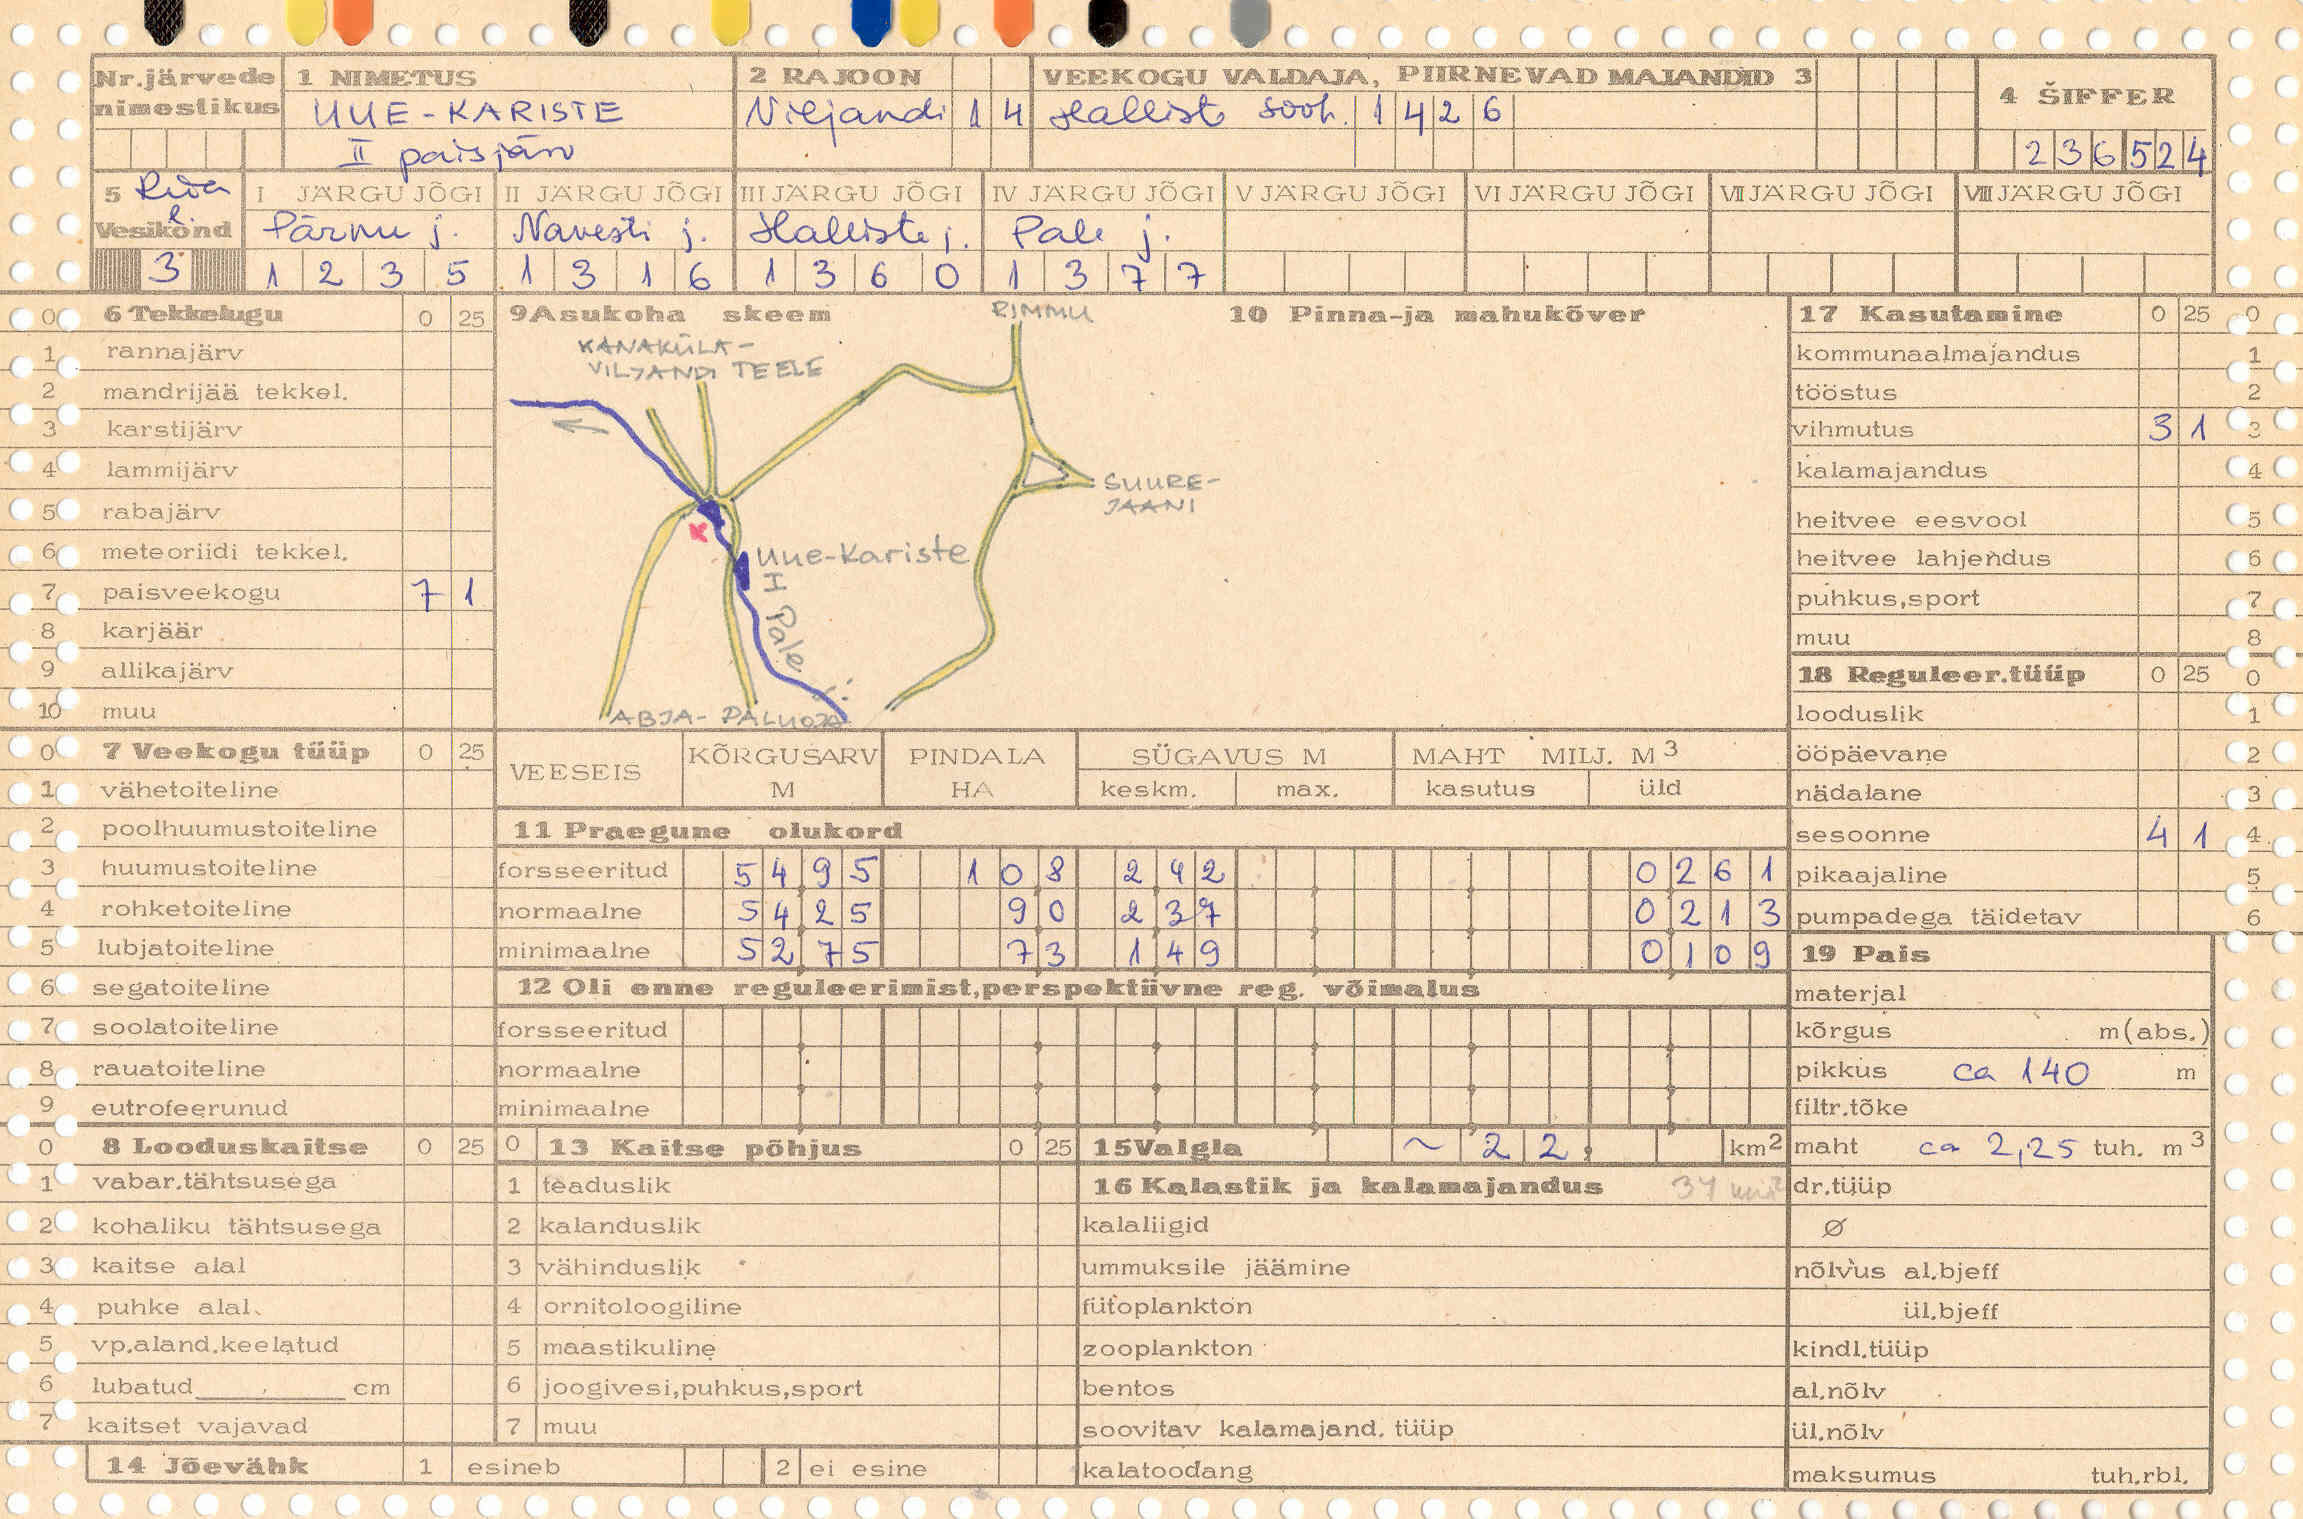 Nr.järvede nimestikus
1 NIMETUS
UUE-KARISTE
II paisjärv
2 RAJOON
Viljandi 1 4
VEEKOGU VALDAJA, PIIRNEVAD MAJANDID 3
Hallist sovh. 1 4 2 6
4 ŠIFFER
2 3 6 5 2 4
5 Riia l. Vesikond
3
I JÄRGU JÕGI
Pärnu j.
1 2 3 5
II JÄRGU JÕGI
Navesti j.
1 3 1 6
III JÄRGU JÕGI
Halliste j.
1 3 6 0
IV JÄRGU JÕGI
Pale j.
1 3 7 7
V JÄRGU JÕGI
VI JÄRGU JÕGI
VII JÄRGU JÕGI
VIII JÄRGU JÕGI
0 6 Tekkelugu 0 25
1 rannajärv
2 mandrijää tekkel.
3 karstijärv
4 lammijärv
5 rabajärv
6 meteoriidi tekkel.
7 paisveekogu 7 1
8 karjäär
9 allikajärv
10 muu
0 7 Veekogu tüüp 0 25
1 vähetoiteline
2 poolhuumustoiteline
3 huumustoiteline
4 rohketoiteline
5 lubjatoiteline
6 segatoiteline
7 soolatoiteline
8 rauatoiteline
9 eutrofeerunud
0 8 Looduskaitse 0 25
1 vabar.tähtsusega
2 kohaliku tähtsusega
3 kaitse alal
4 puhke alal
5 vp.aland.keelatud
6 lubatud______cm
7 kaitset vajavad
14 Jõevähk 1 esineb 2 ei esine
9 Asukoha skeem
RIMMU
KANAKÜLA-
VILJANDI TEELE
SUURE-
JAANI
Uue-Kariste
I
Pale
ABJA-PALUOJA
10 Pinna-ja mahukõver
VEESEIS
KÕRGUSARV M
PINDALA HA
SÜGAVUS M
keskm. max.
MAHT MILJ. M3
kasutus üld
11 Praegune olukord
forsseeritud 5 4 9 5 1 0 8 2 4 2 0 2 6 1
normaalne 5 4 2 5 9 0 2 3 7 0 2 1 3
minimaalne 5 2 7 5 7 3 1 4 9 0 1 0 9
12 Oli enne reguleerimist,perspektiivne reg. võimalus
forsseeritud
normaalne
minimaalne
0 13 Kaitse põhjus 0 25
1 teaduslik
2 kalanduslik
3 vähinduslik
4 ornitoloogiline
5 maastikuline
6 joogivesi,puhkus,sport
7 muu
15 Valgla ~ 2 2, km2
16 Kalastik ja kalamajandus
kalaliigid
ummuksile jäämine
fütoplankton
zooplankton
bentos
soovitav kalamajand. tüüp
kalatoodang
17 Kasutamine 0 25 0
kommunaalmajandus 1
tööstus 2
vihmutus 3 1 3
kalamajandus 4
heitvee eesvool 5
heitvee lahjendus 6
puhkus,sport 7
muu 8
18 Reguleer.tüüp 0 25 0
looduslik 1
ööpäevane 2
nädalane 3
sesoonne 4 1 4
pikaajaline 5
pumpadega täidetav 6
19 Pais
materjal
kõrgus m(abs.)
pikkus ca 140 m
filtr.tõke
maht ca 2,25 tuh. m3
dr.tüüp
Ø
nõlvus al.bjeff
ül.bjeff
kindl.tüüp
al.nõlv
ül.nõlv
maksumus tuh.rbl.